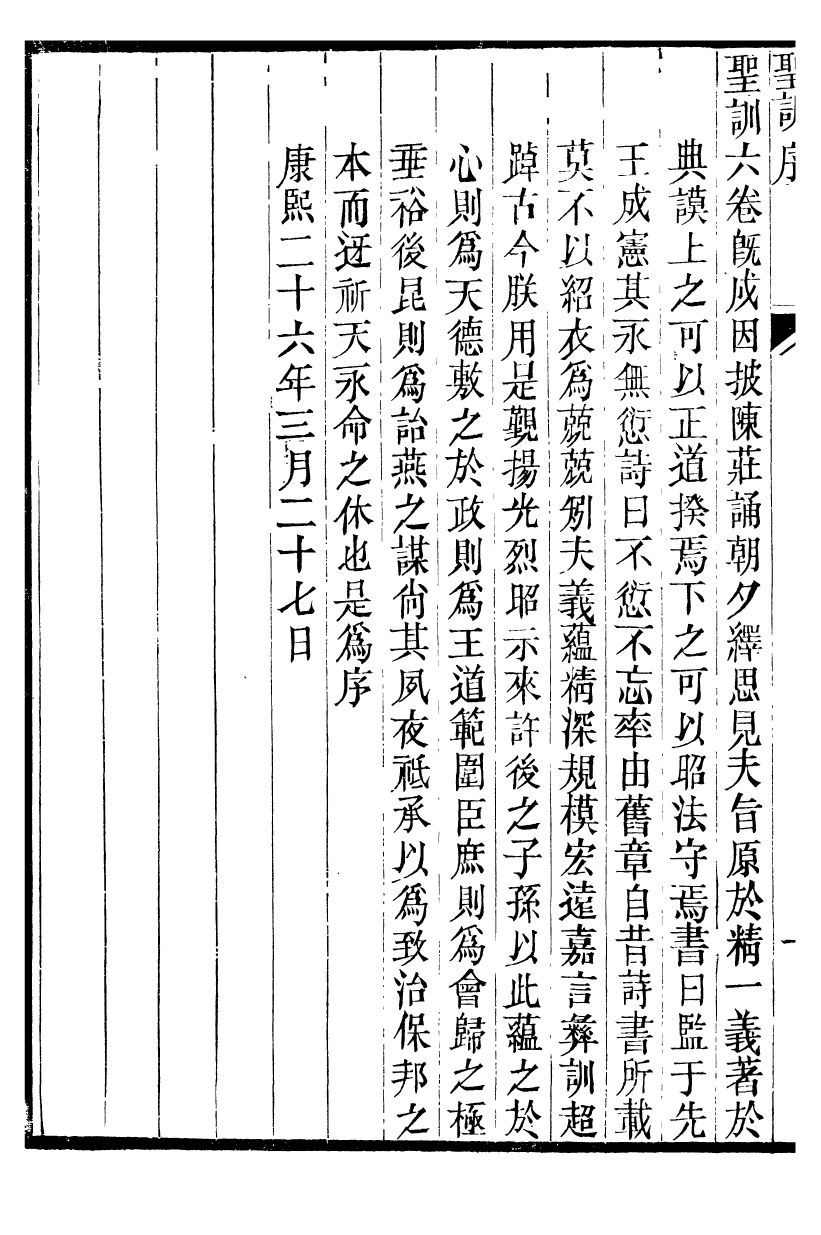 聖訓序
一
聖訓六卷旣成因披陳莊誦朝夕繹思見夫旨原於精一義著於
典謨上之可以正道揆焉下之可以昭法守焉書曰監于先
王成憲其永無愆詩曰不愆不忘率由舊章自昔詩書所載
莫不以紹衣爲兢兢矧夫義蘊精深規模宏遠嘉言彝訓超
踔古今朕用是覲揚光烈昭示來許後之子孫以此蘊之於
心則爲天德敷之於政則爲王道範圍臣庶則爲會歸之極
垂裕後昆則爲詒燕之謀尙其夙夜祗承以爲致治保邦之
本而迓祈天永命之休也是爲序
康熙二十六年三月二十七日